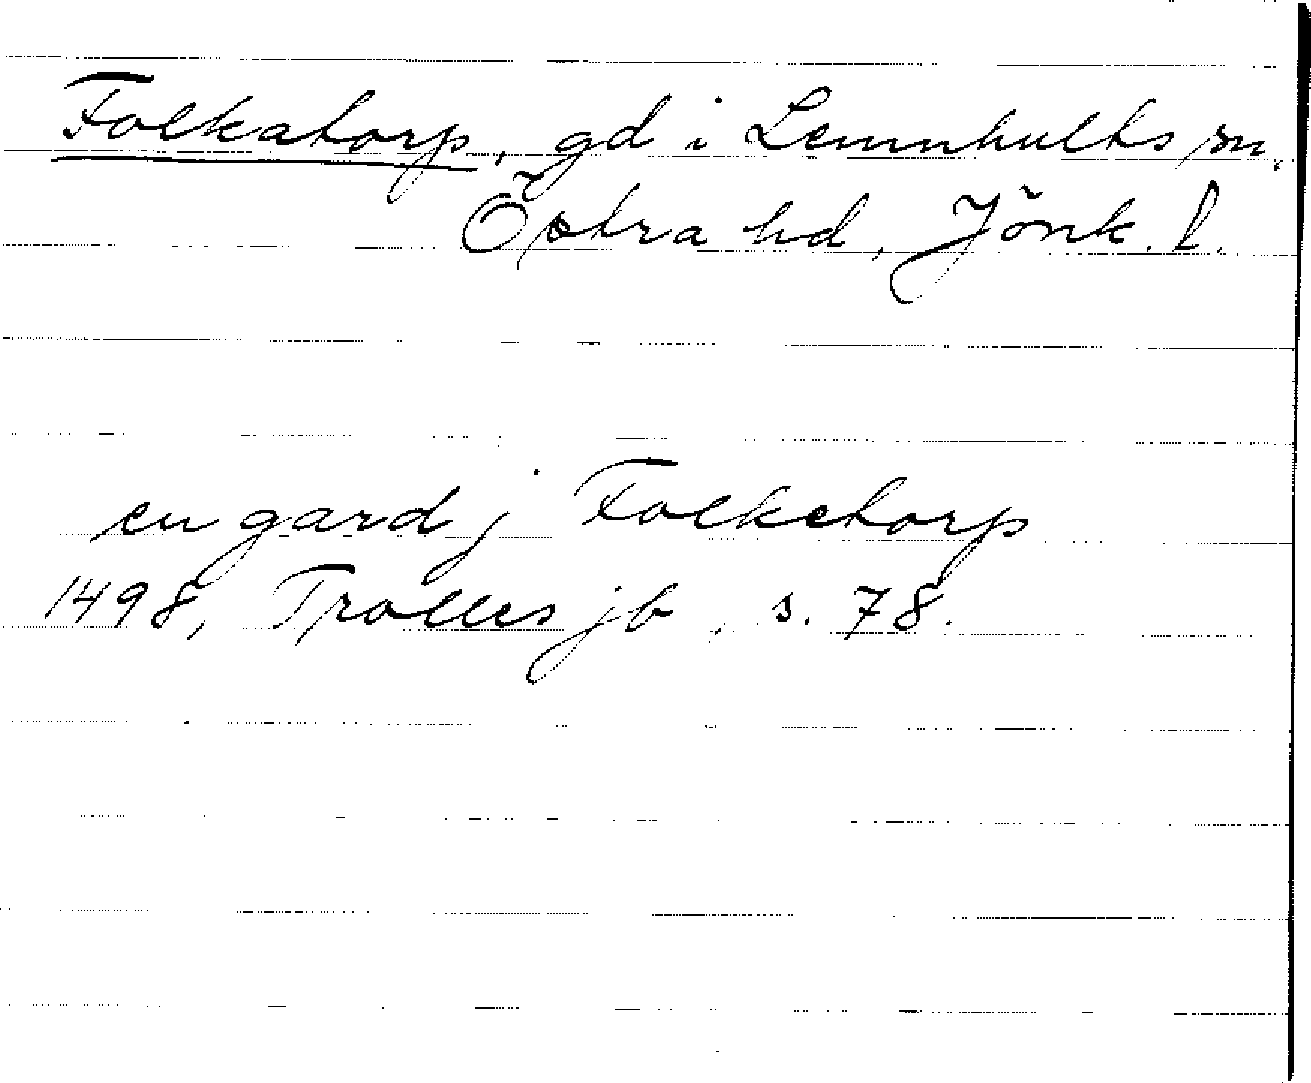 Folkatorp, gd i Lemnhults sn.
Östra hd, Jönk. l.
en gard j Folketorp
1498, Trolles jb, s. 78.